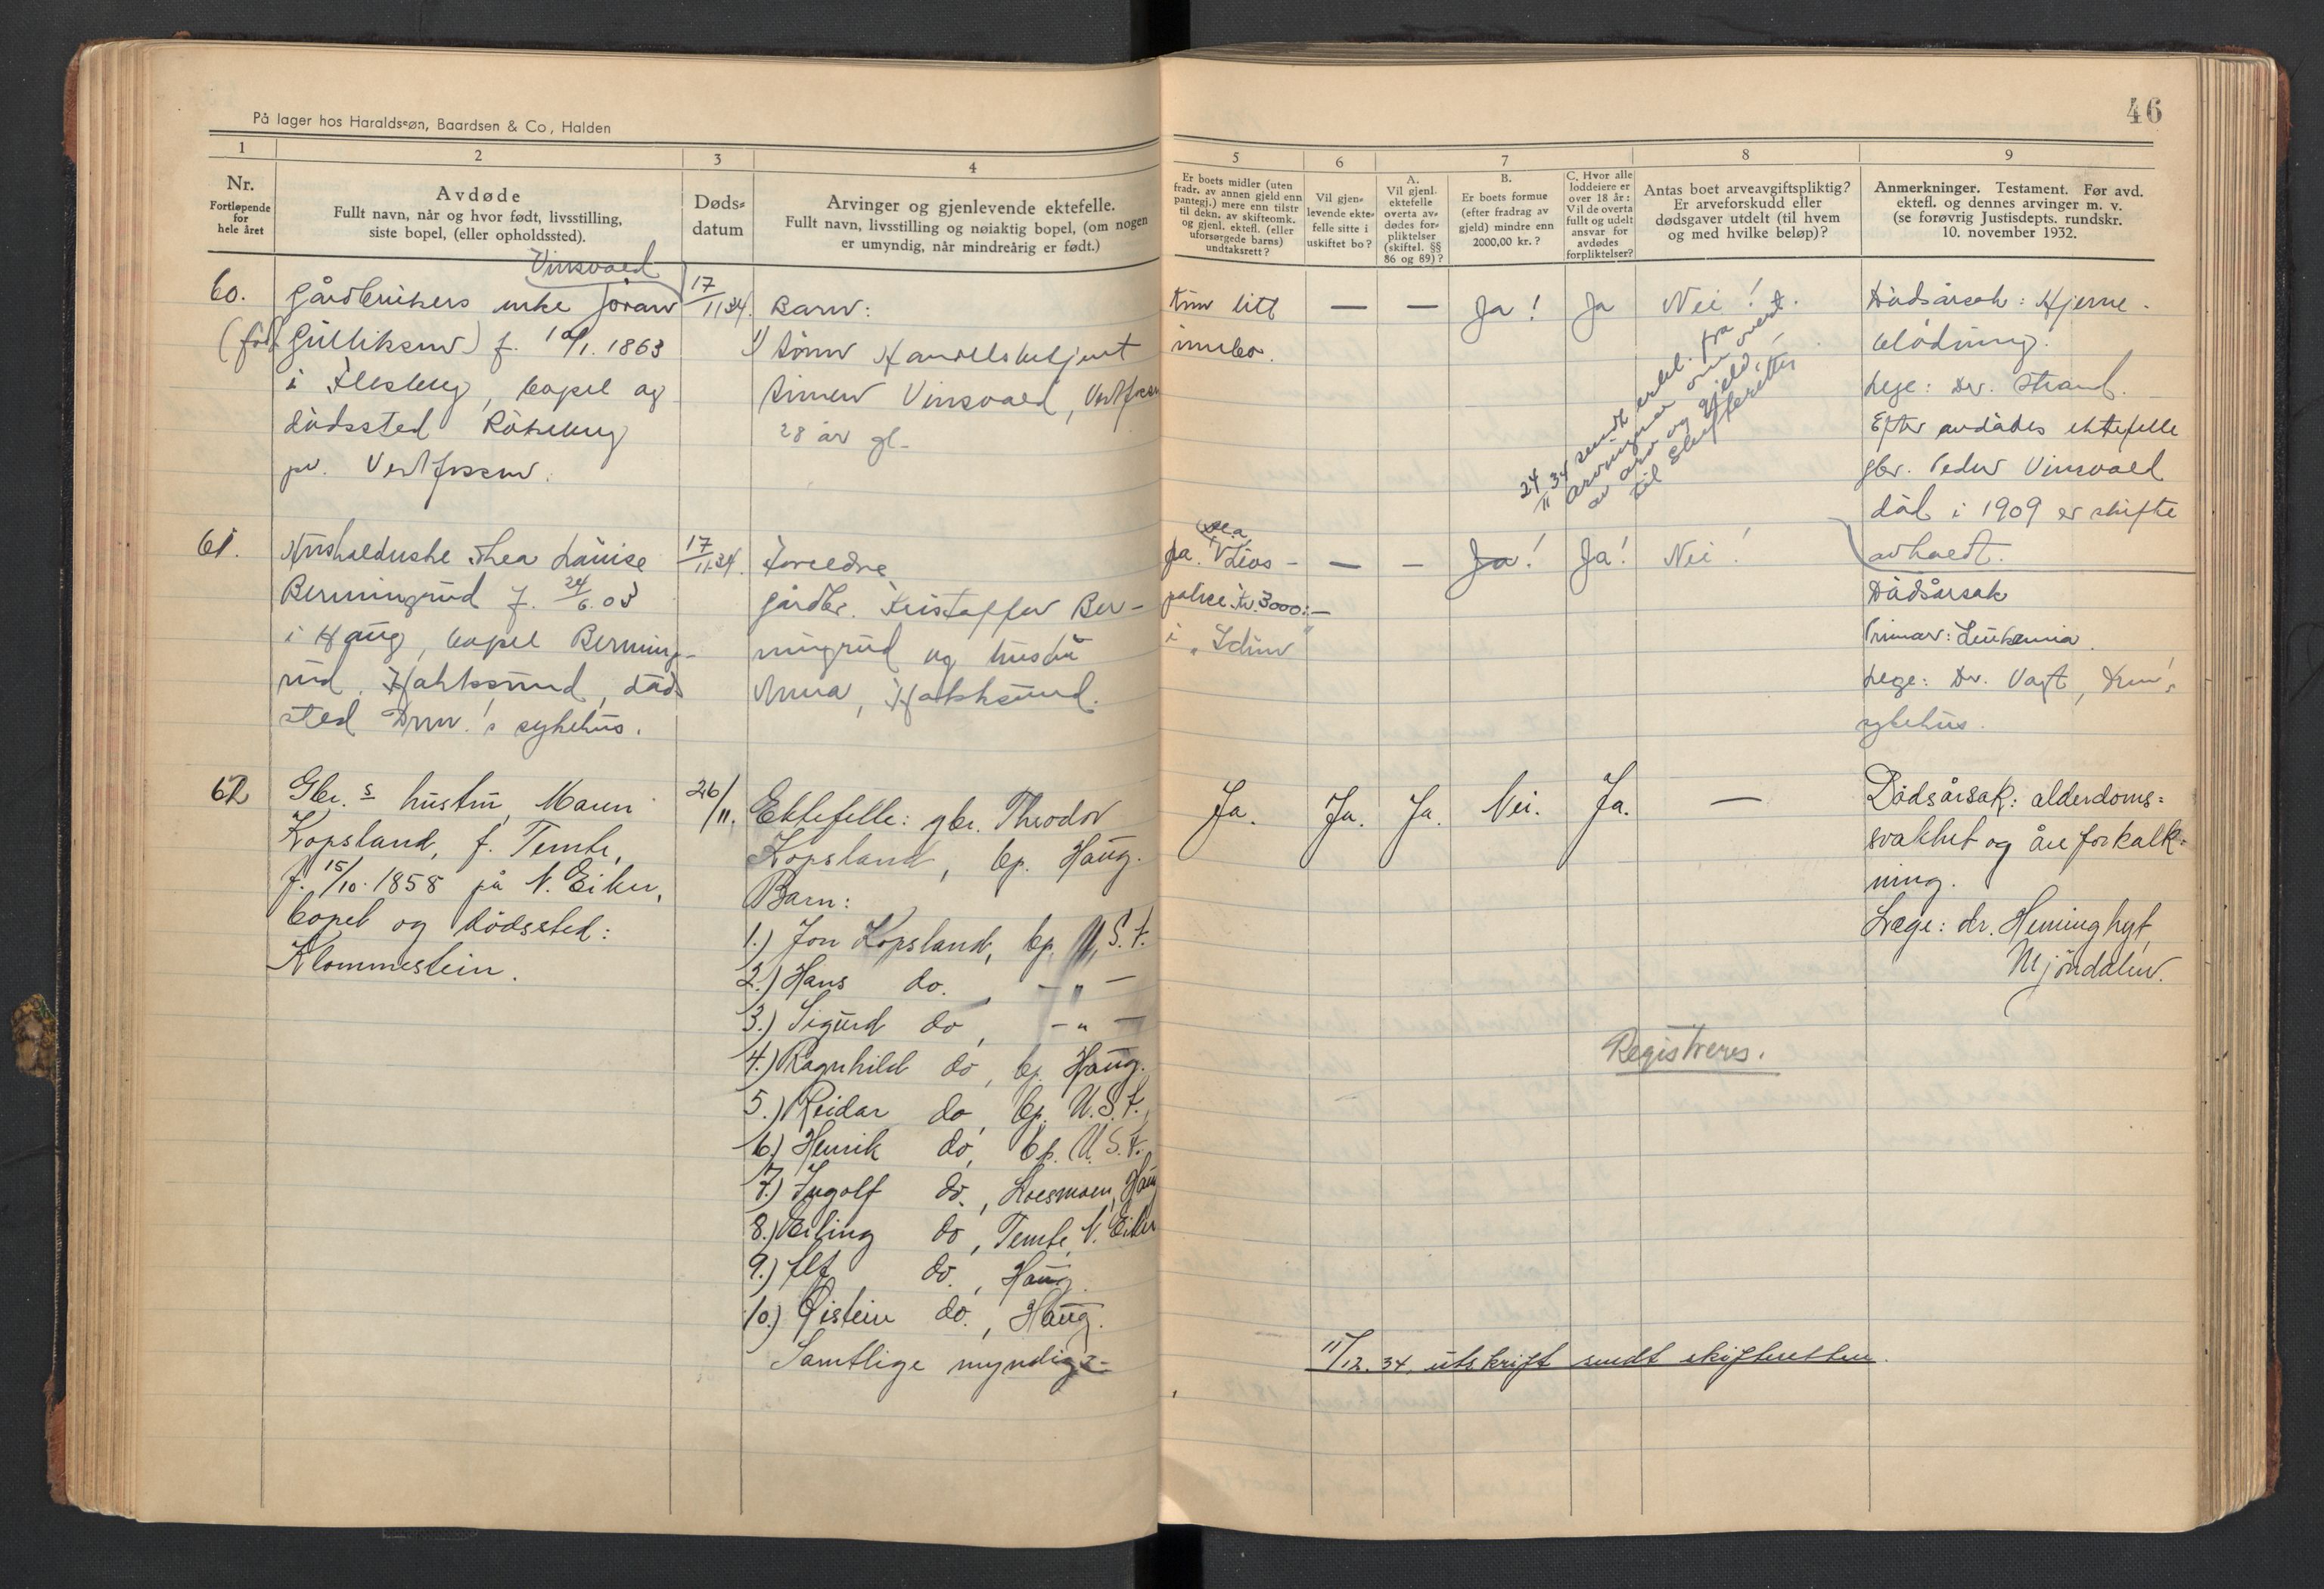 På lager hos Haraldssøn, Baardsen & Co, Halden
46
1
2
3
4
5
6
7
8
9
Nr.
Fortløpende
for
hele året
Avdøde
Fullt navn, når og hvor født, livsstilling,
siste bopel, (eller opholdssted).
Døds-
datum
Arvinger og gjenlevende ektefelle.
Fullt navn, livsstilling og nøiaktig bopel, (om nogen
er umyndig, når mindreårig er født.)
Er boets midler (uten
fradr. av annen gjeld enn
pantegj.) mere enn tilstr
til dekn. av skifteomk.
og gjenl. ektefl. (eller
uforsørgede barns)
undtaksrett?
Vil gjen-
levende ekte-
felle sitte i
uskiftet bo?
A.
Vil gjenl.
ektefelle
overta av-
dødes for-
pliktelser
(skiftel. §§
86 og 89)?
B.
Er boets formue
(efter fradrag av
gjeld) mindre enn
2000,00 kr.?
C. Hvor alle
loddeiere er
over 18 år:
Vil de overta
fullt og udelt
ansvar for
avdødes
forpliktelser?
Antas boet arveavgiftspliktig?
Er arveforskudd eller
dødsgaver utdelt (til hvem
og med hvilke beløp)?
Anmerkninger. Testament. Før avd.
ektefl. og dennes arvinger m. v.
(se forøvrig Justisdepts. rundskr.
10. november 1932.
Vinsvold
60.
Gårdbrukers enke Jøran
(født Gulliksen) f. 10/1. 1863
i Flesberg, bopel og
dødssted Rökeberg
pr. Vestfossen.
17/11 34.
Barn:
1) Sønn Handelsbetjent
Simen Vinsvold, Vestfossen
28 år gl.
Kun litt
innbo.
— — Ja! Ja Nei!
24/11 34 sendt erkl. fra
arvingene om overt.
av arv og gjeld,
til Skifteretten
Dødsårsak: Hjerne-
blødning.
Lege: Dr. Strand.
Efter avdødes ektefelle
gbr. Peder Vinsvold
død i 1909 er skifte
avholdt.
61.
Husholderske Thea Louise
Berningrud f. 24/6.03
i Haug, bopel Berning-
rud, Hokksund, døds
sted Drm.'s sykehus.
17/11.34.
Foreldre
gårdbr. Kristoffer Ber-
ningrud og hustru
Anna, Hokksund.
Ja. Livs-
police kr. 3000:-
i "Idun"
— — Ja! Ja! Nei!
Dødsårsak
Primær: Leukemia.
Lege: Dr. Vogt, Drm's
sykehus.
62
Gbr.s hustru, Maren
Kopsland, f. Temte,
f. 15/10. 1858 på N. Eiker,
bopel og dødssted:
Klommestein.
26/11.
Ektefelle: gbr. Theodor
Kopsland, bp. Haug.
Barn:
1.) Jon Kopsland, bp. U.S.A.
2.) Hans do. , — „ —
3.) Sigurd do , — „ —
4.) Ragnhild do , bp. Haug.
5.) Reidar do , bp. U.S.A.,
6.) Henrik do, bp. U.S.A.
7.) Ingolf do., Loesmoen, Haug
8.) Erling do , Temte, N. Eiker
9.) Alf do. , Haug.
10.) Øistein do. , Haug.
Samtlige myndige.
Ja. Ja. Ja. Nei. Ja. —
Dødsårsak: alderdoms=
svakhet og åreforkalk=
ning.
Læge: dr. Heminghyt,
Mjøndalen.
Registreres.
11/12.34, utskrift sendt skifteretten.